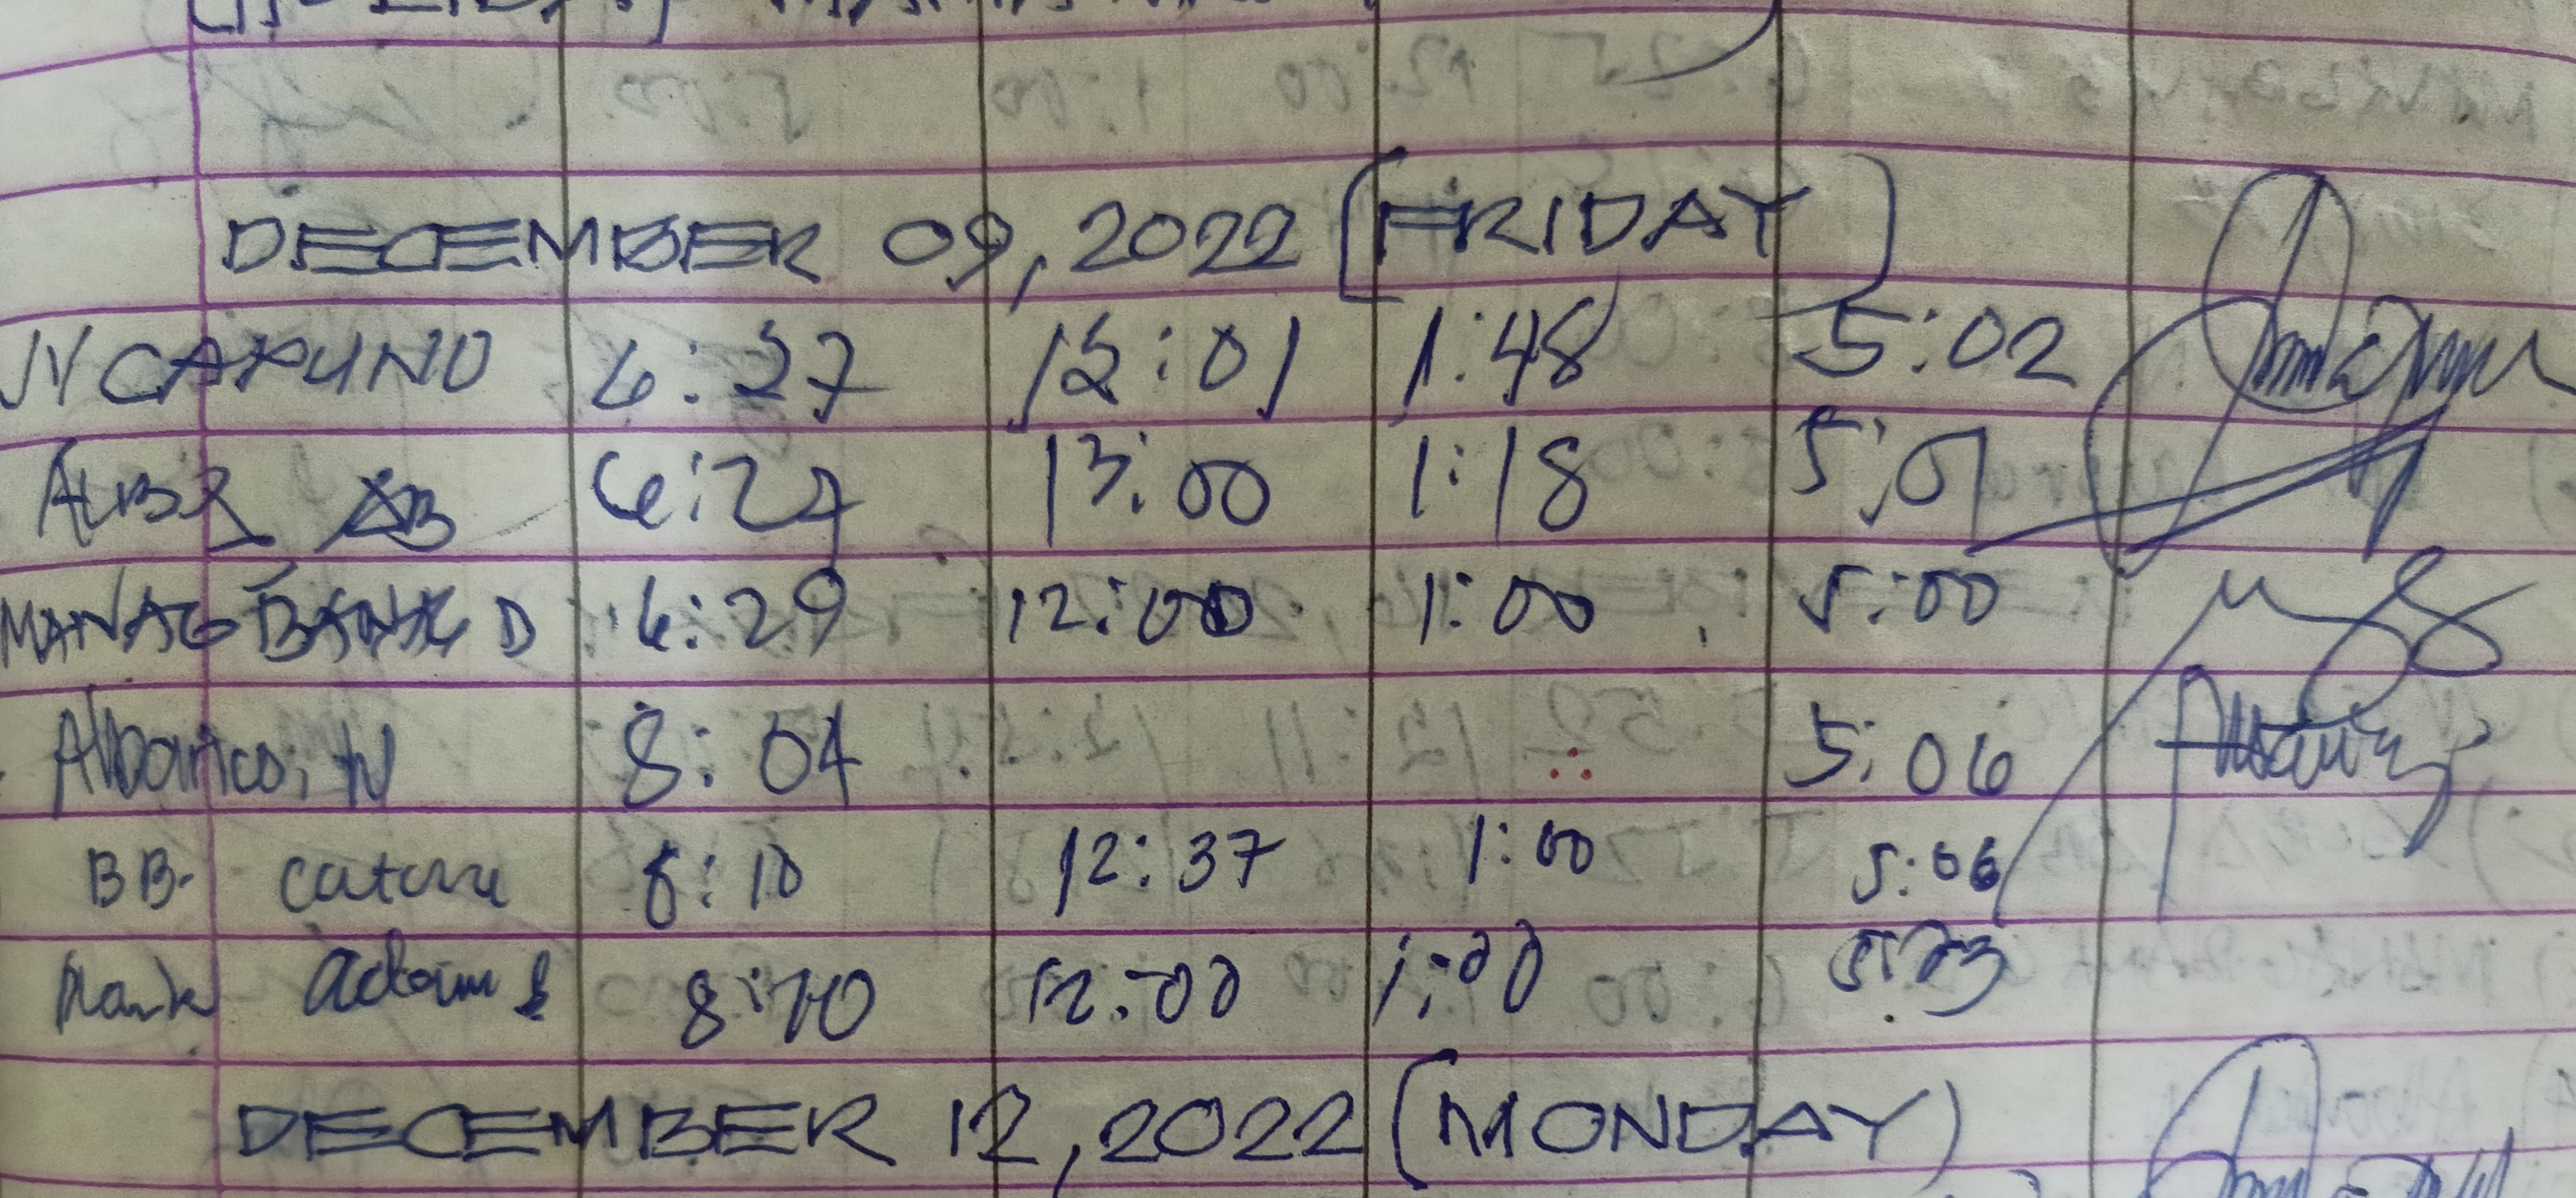 DECEMBER 09, 2022 (FRIDAY)
CAPUNO 6:27 12:01 1:48 5:02
ALBA AB 6:29 13:00 1:18 5:01
MANAGBANAG D 6:29 12:00 1:00 5:00
Albarico, N 8:04 5:06
BB. 8:10 12:37 1:00 5:06
Mark adam 8:10 12:00 1:00
DECEMBER 12, 2022 (MONDAY)